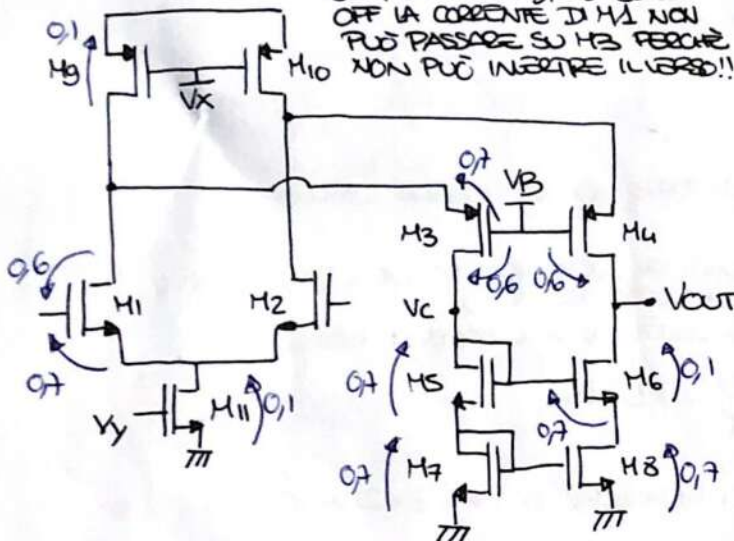 OFF LA CORRENTE DI M1 NON
PUÒ PASSARE SU M3 PERCHÈ
NON PUÒ INVERTIRE IL VERSO!!
0,1
M9
VX
M10
0,7
VB
M3
M4
0,6
0,6
0,6
M1
M2
VC
VOUT
0,7
0,7
M5
M6
0,1
Vy
M11
0,1
0,7
0,7
M7
M8
0,7